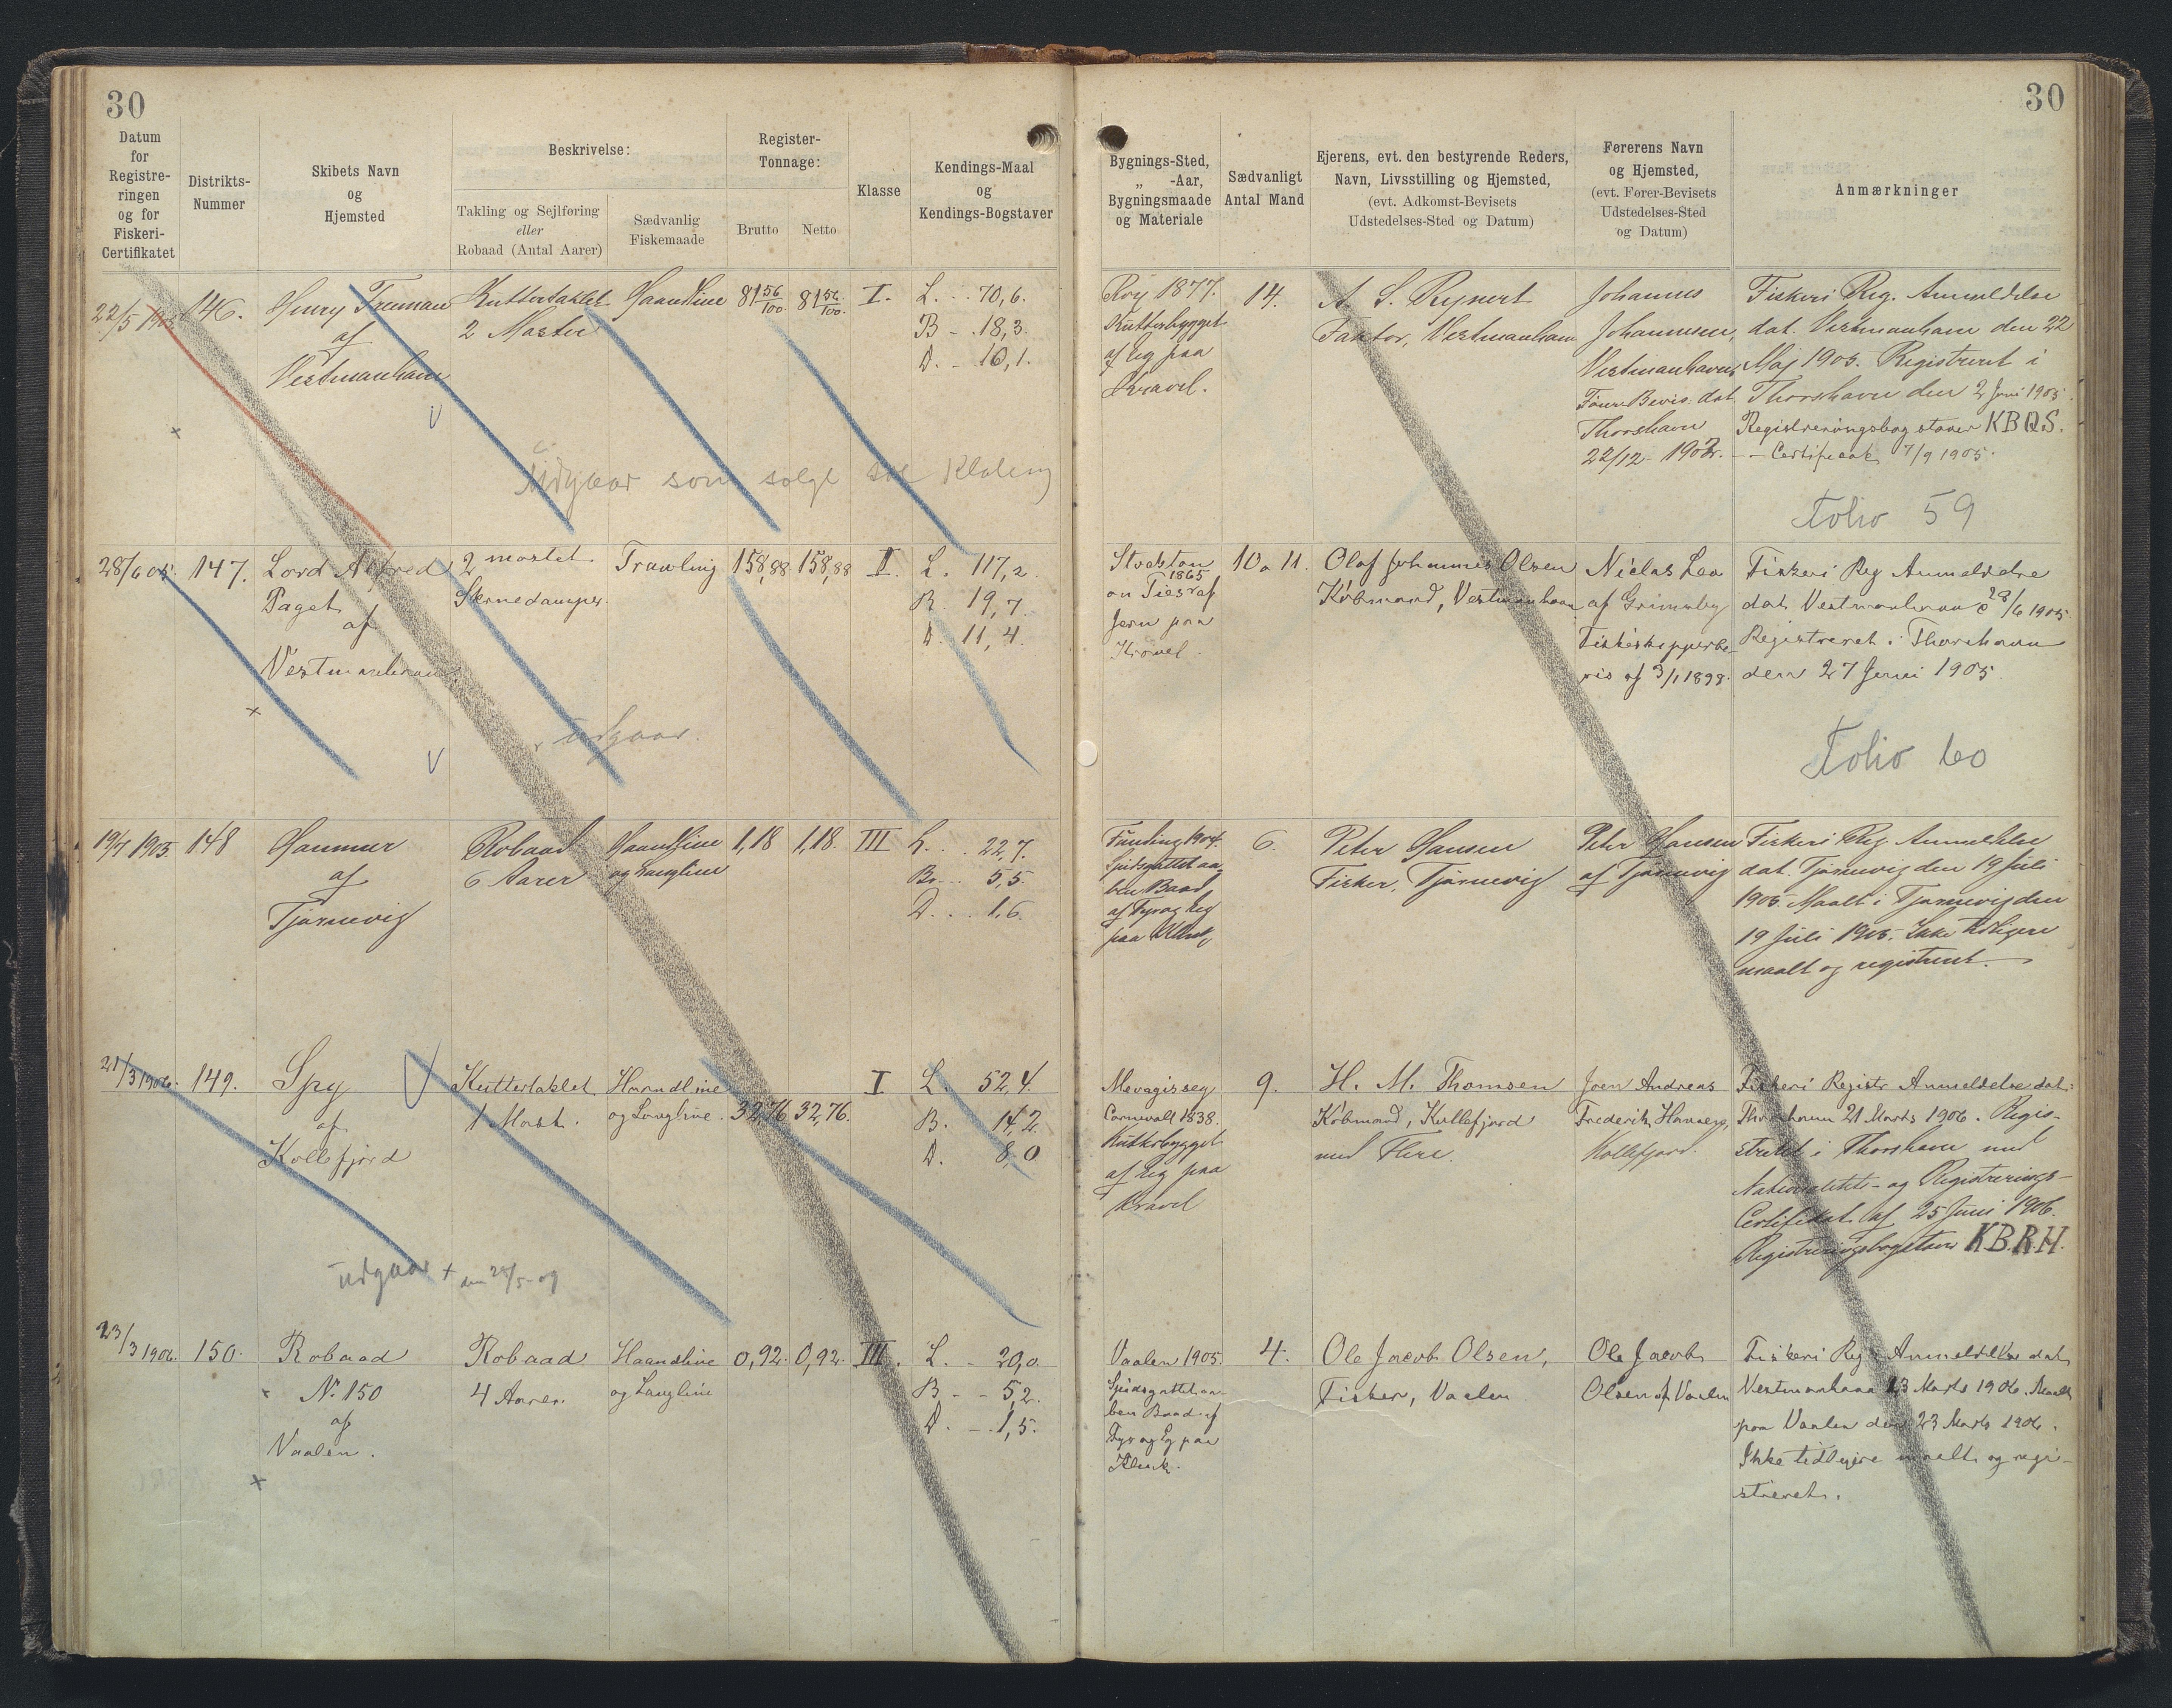 30
30
Datum
for
Registre-
ringen
og for
Fiskeri-
Certifikatet
Distrikts-
Nummer
Skibets Navn
og
Hjemsted
Beskrivelse:
Takling og Sejlføring
eller
Robaad (Antal Aarer)
Sædvanlig
Fiskemaade
Register-
Tonnage:
Brutto
Netto
Klasse
Kendings-Maal
og
Kendings-Bogstaver
Bygnings-Sted,
„ -Aar,
Bygningsmaade
og Materiale
Sædvanligt
Antal Mand
Ejerens, evt. den bestyrende Reders,
Navn, Livsstilling og Hjemsted,
(evt. Adkomst-Bevisets
Udstedelses-Sted og Datum)
Førerens Navn
og Hjemsted,
(evt. Fører-Bevisets
Udstedelses-Sted
og Datum)
Anmærkninger
22/5 1905
146.
Henry Freeman
af
Vestmanhavn
Kuttertaklet
2 Master
Haandline
81 56/100.
81 56/100.
I.
L. . . 70,6.
B - . 18,3.
D. . 10,1.
1877.
Kutterbygget
af Eg paa
Kravel.
14.
A. S.
Faktor, Vestmanhavn
Johannes
Johannesen,
Vestmanhavn,
Fører Bevis dat.
Thorshavn
22/12 - 1902.
Fiskeri Reg. Anmeldelse
dat. Vestmanhavn den 22
Maj 1905. Registreret i
Thorshavn den 2 Juni 1905.
Registreringsbogstaver KBQS.
- - Certifikat 7/9 1905.
Udgaar som solgt til
Folio 59
28/6 05.
147.
Lord Alfred
Paget
af
Vestmanhavn.
2 mastet
Skruedamper.
Trawling
158,88
158,88
II.
L. 117,2.
B. 19,7.
D. 11,4.
Stockton
1865
on Tees af
Jern paa
Kravel.
10 a 11.
Olaf Johannes Olsen
Købmand, Vestmanhavn
Niclas Lea
af Grimsby
Fiskeskipperbe-
vis af 3/1 1898.
Fiskeri Reg Anmeldelse
dat Vestmanhavn d 28/6 1905
Registreret i Thorshavn
den 27 Juni 1905.
udgaar.
Folio 60
19/7 1905
148
af
Tjørnevig
Robaad
6 Aarer
Haandline
og Langline
1,18
1,18.
III
L. . . 22,7.
Br. . . 5,5.
D. . . 1,6.
Funding 1904.
Spidsgattet aa-
ben Baad
af Fyr og Eg
paa Klink
6.
Peter Hansen
Fisker, Tjørnevig
Peter Hansen
af Tjørnevig
Fiskeri Reg. Anmeldelse
dat. Tjørnevig den 19 Juli
1905. Maalt i Tjørnevig den
19 Juli 1905. Ikke tidligere
maalt og registreret.
21/3 1906.
149.
Spy
af
Kollefjord
Kuttertaklet
1 Mast.
Haandline
og Langline.
32,76
32,76.
I
L. 52,4.
B. 14,2.
D. 8,0
Mevagissey
Cornwall 1838.
Kutterbygget
af Eg paa
Kravel
9.
H. M. Thomsen
Købmand, Kollefjord
med Flere.
Joen Andreas
Frederik Hansen,
Kollefjord.
Fiskeri Registr Anmeldelse dat:
Thorshavn 21 Marts 1906. Regis-
treret i Thorshavn med
Nationalitets- og Registrerings-
Certifikat af 25 Juni 1906.
Registreringsbogstaver KBRH.
udgaar + den 24/5-09
23/3 1906.
150.
Robaad
No 150
af
Vaalen.
Robaad
4 Aarer.
Haandline
og Langline
0,92.
0,92.
III.
L. - 20,0.
B - - 5,2.
D. - . 1,5.
Vaalen 1905.
Spidsgattet aa-
ben Baad af
Fyr og Eg paa
Klink.
4.
Ole Jacob Olsen,
Fisker, Vaalen
Ole Jacob
Olsen af Vaalen
Fiskeri Reg Anmeldelse dat
Vestmanhavn 23 Marts 1906. Maalt
paa Vaalen den 23 Marts 1906.
Ikke tidligere maalt og regi-
streret.